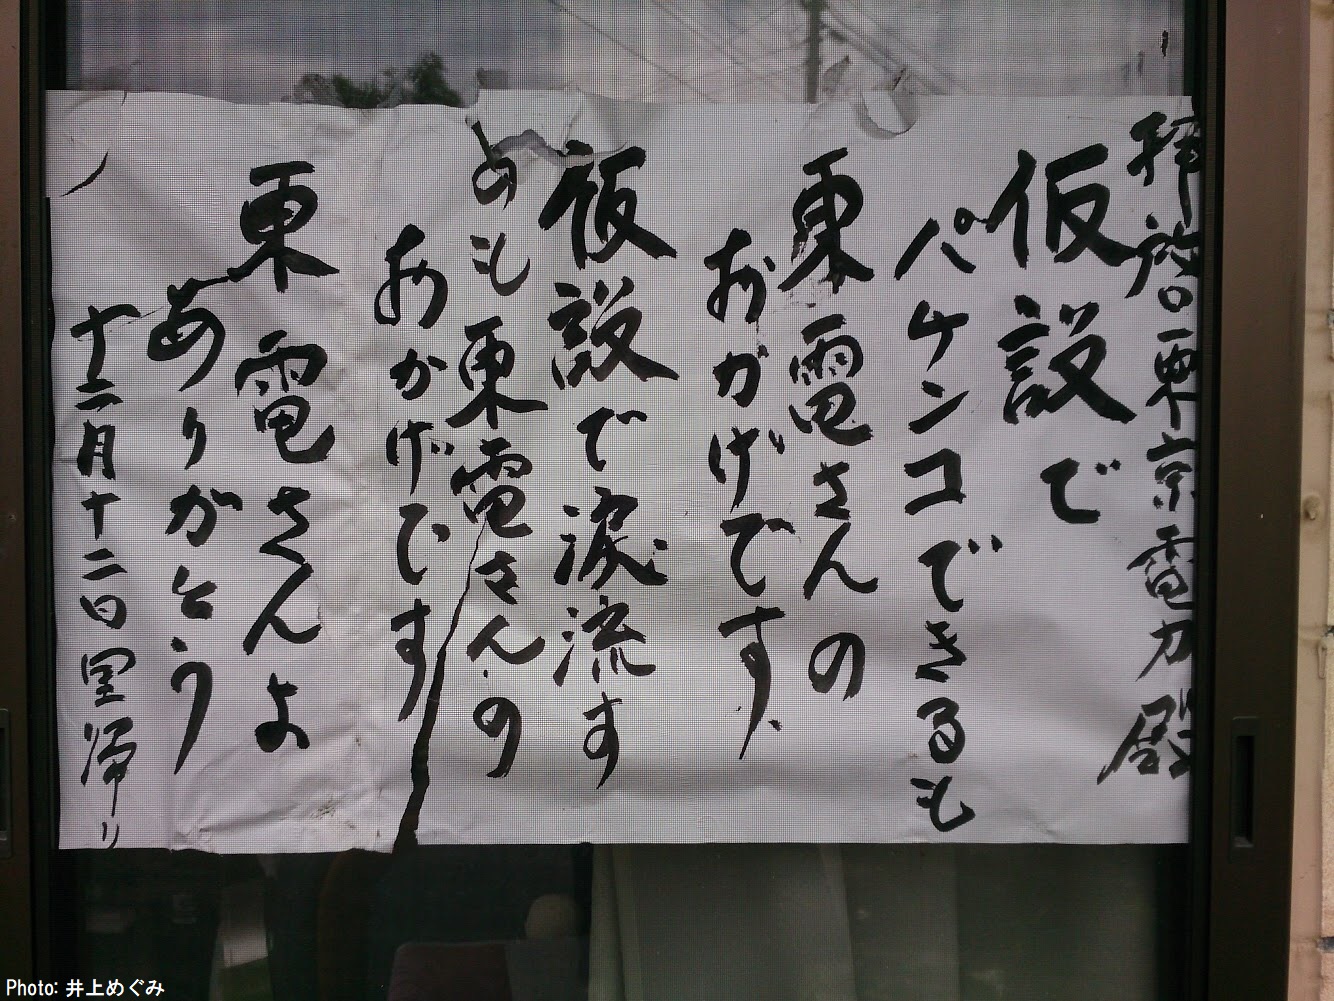 拝啓東京電力殿
仮設で
パチンコできるも
東電さんの
おかげです、
仮設で涙流す
のも東電さんの
おかげです
東電さんよ
ありがとう
十二月十二日
Photo: 井上めぐみ